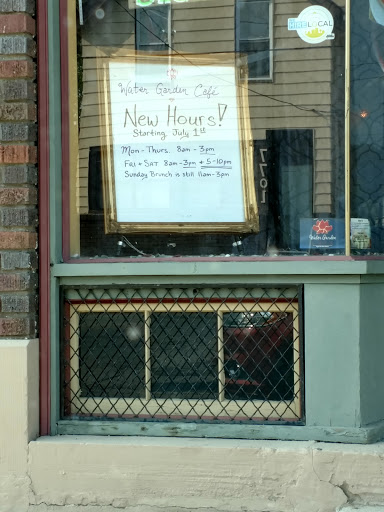 LOCAL
Water Garden Café
New Hours!
Starting July 1st
Mon - Thurs. 8am - 3pm
Fri - Sat 8am - 3pm + 5-10pm
Sunday Brunch is still 11am-3pm
7701
Water Garden